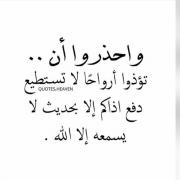 واحذروا أن ..
تؤذوا أرواحًا لا تستطيع
QUOTES.HEAVEN
دفع اذاكم إلا بحديث لا
يسمعه إلا الله .